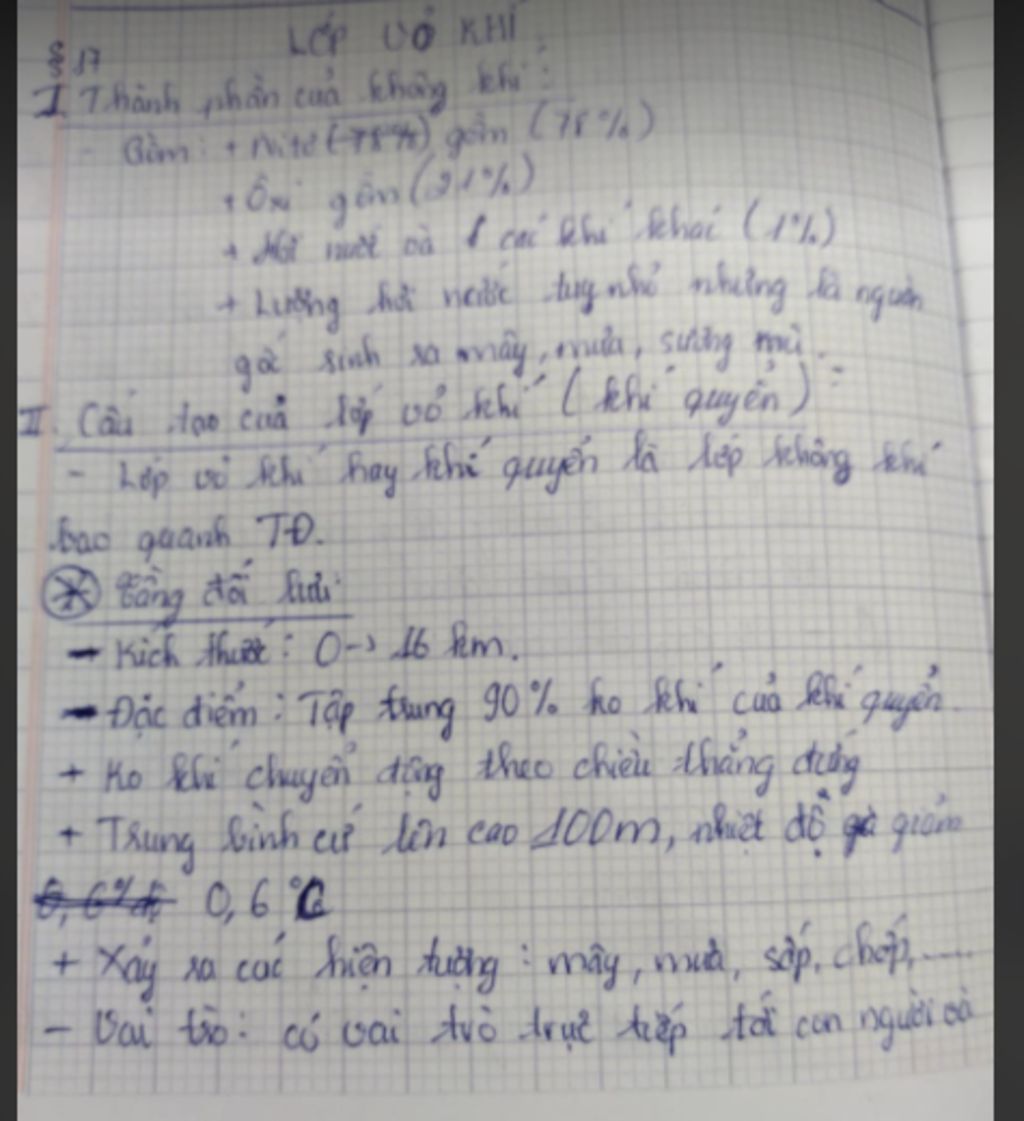 LỚP VỎ KHÍ
§ 17
I Thành phần của không khí:
- Gồm: + Nitơ (78%) gồm (78%)
+ Ôxi gồm (21%)
+ Hơi nước và các khí khác (1%)
+ Lượng hơi nước tuy nhỏ nhưng là nguồn
gố sinh ra mây, mưa, sương mù.
II. Cấu tạo của lớp vỏ khí (khí quyển):
- Lớp vỏ khí hay khí quyển là lớp không khí
bao quanh TĐ.
* Tầng đối lưu:
- Kích thước: 0 → 16 km.
- Đặc điểm: Tập trung 90% ko khí của khí quyển.
+ Ko khí chuyển động theo chiều thẳng đứng
+ Trung bình cứ lên cao 100m, nhiệt độ giảm
0,6°C
+ Xảy ra các hiện tượng: mây, mưa, sấp, chớp,.....
- Vai trò: có vai trò trực tiếp tới con người và